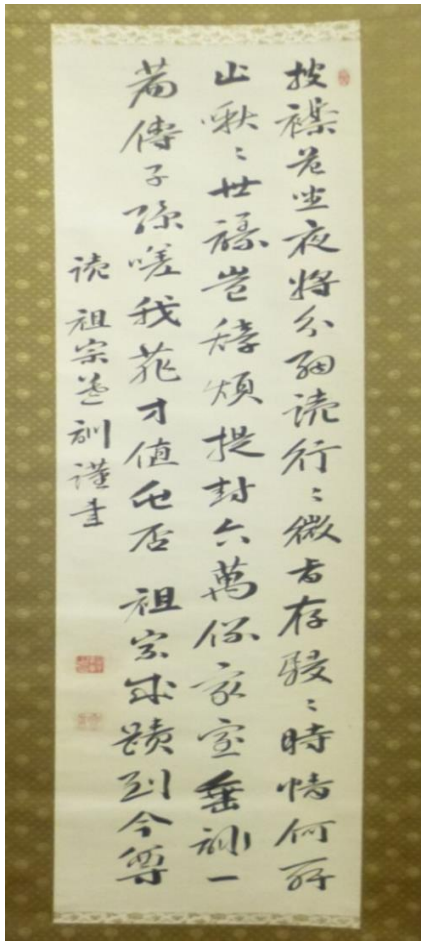 披襟危坐夜将分細読行〻微旨存駸〻時情何所
止啾〻世議豈辞煩提封六萬保家室垂訓一
篇傳子孫嗟我菲才値屯否 祖宗成蹟到今尊
読 祖宗遺訓謹書